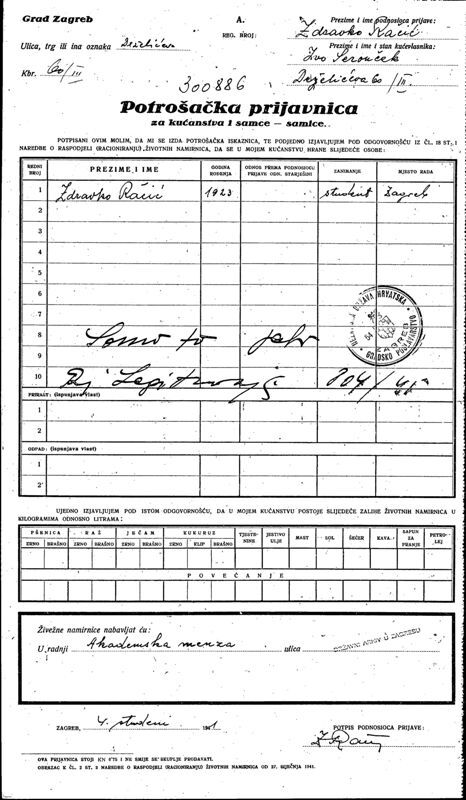 Grad Zagreb
A.
REG. BROJ:
Prezime i ime podnosioca prijave:
Zdravko Račić
Ulica, trg ili ina oznaka Deželićeva
Prezime i ime i stan kućevlasnika:
Ivo
Kbr. 60/III
Deželićeva 60/III.
300886
Potrošačka prijavnica
za kućanstva i samce – samice.
POTPISANI OVIM MOLIM, DA MI SE IZDA POTROŠAČKA ISKAZNICA, TE PODJEDNO IZJAVLJUJEM POD ODGOVORNOŠĆU IZ ČL. 18 ST. 1
NAREDBE O RASPODJELI (RACIONIRANJU) ŽIVOTNIH NAMIRNICA, DA SE U MOJEM KUĆANSTVU HRANE SLIJEDEĆE OSOBE:
REDNI BROJ
PREZIME I IME
GODINA ROĐENJA
ODNOS PREMA PODNOSIOCU PRIJAVE ODN. STARJEŠINI
ZANIMANJE
MJESTO RADA
1 Zdravko Račić 1923 student Zagreb
2
3
4
5
6
7
8
9
10
PRIRAST: (ispunjava vlast)
1
2
OTPAD: (ispunjava vlast)
1
2
UJEDNO IZJAVLJUJEM POD ISTOM ODGOVORNOŠĆU, DA U MOJEM KUĆANSTVU POSTOJE SLIJEDEĆE ZALIHE ŽIVOTNIH NAMIRNICA U
KILOGRAMIMA ODNOSNO LITRAMA:
PŠENICA RAŽ JEČAM KUKURUZ TJESTENINE JESTIVO ULJE MAST SOL ŠEĆER KAVA SAPUN ZA PRANJE PETROLEJ
ZRNO BRAŠNO ZRNO BRAŠNO ZRNO BRAŠNO ZRNO KLIP BRAŠNO
POVEĆANJE
Živežne namirnice nabavljat ću:
U radnji Akademska menza ulica
DRŽAVNI ARHIV U ZAGREBU
ZAGREB, 4. studeni 1941
POTPIS PODNOSIOCA PRIJAVE:
OVA PRIJAVNICA STOJI KN 0'75 I NE SMIJE SE SKUPLJE PRODAVATI.
OBRAZAC K ČL. 2 ST. 3 NAREDBE O RASPODJELI (RACIONIRANJU) ŽIVOTNIH NAMIRNICA OD 27. SIJEČNJA 1941.